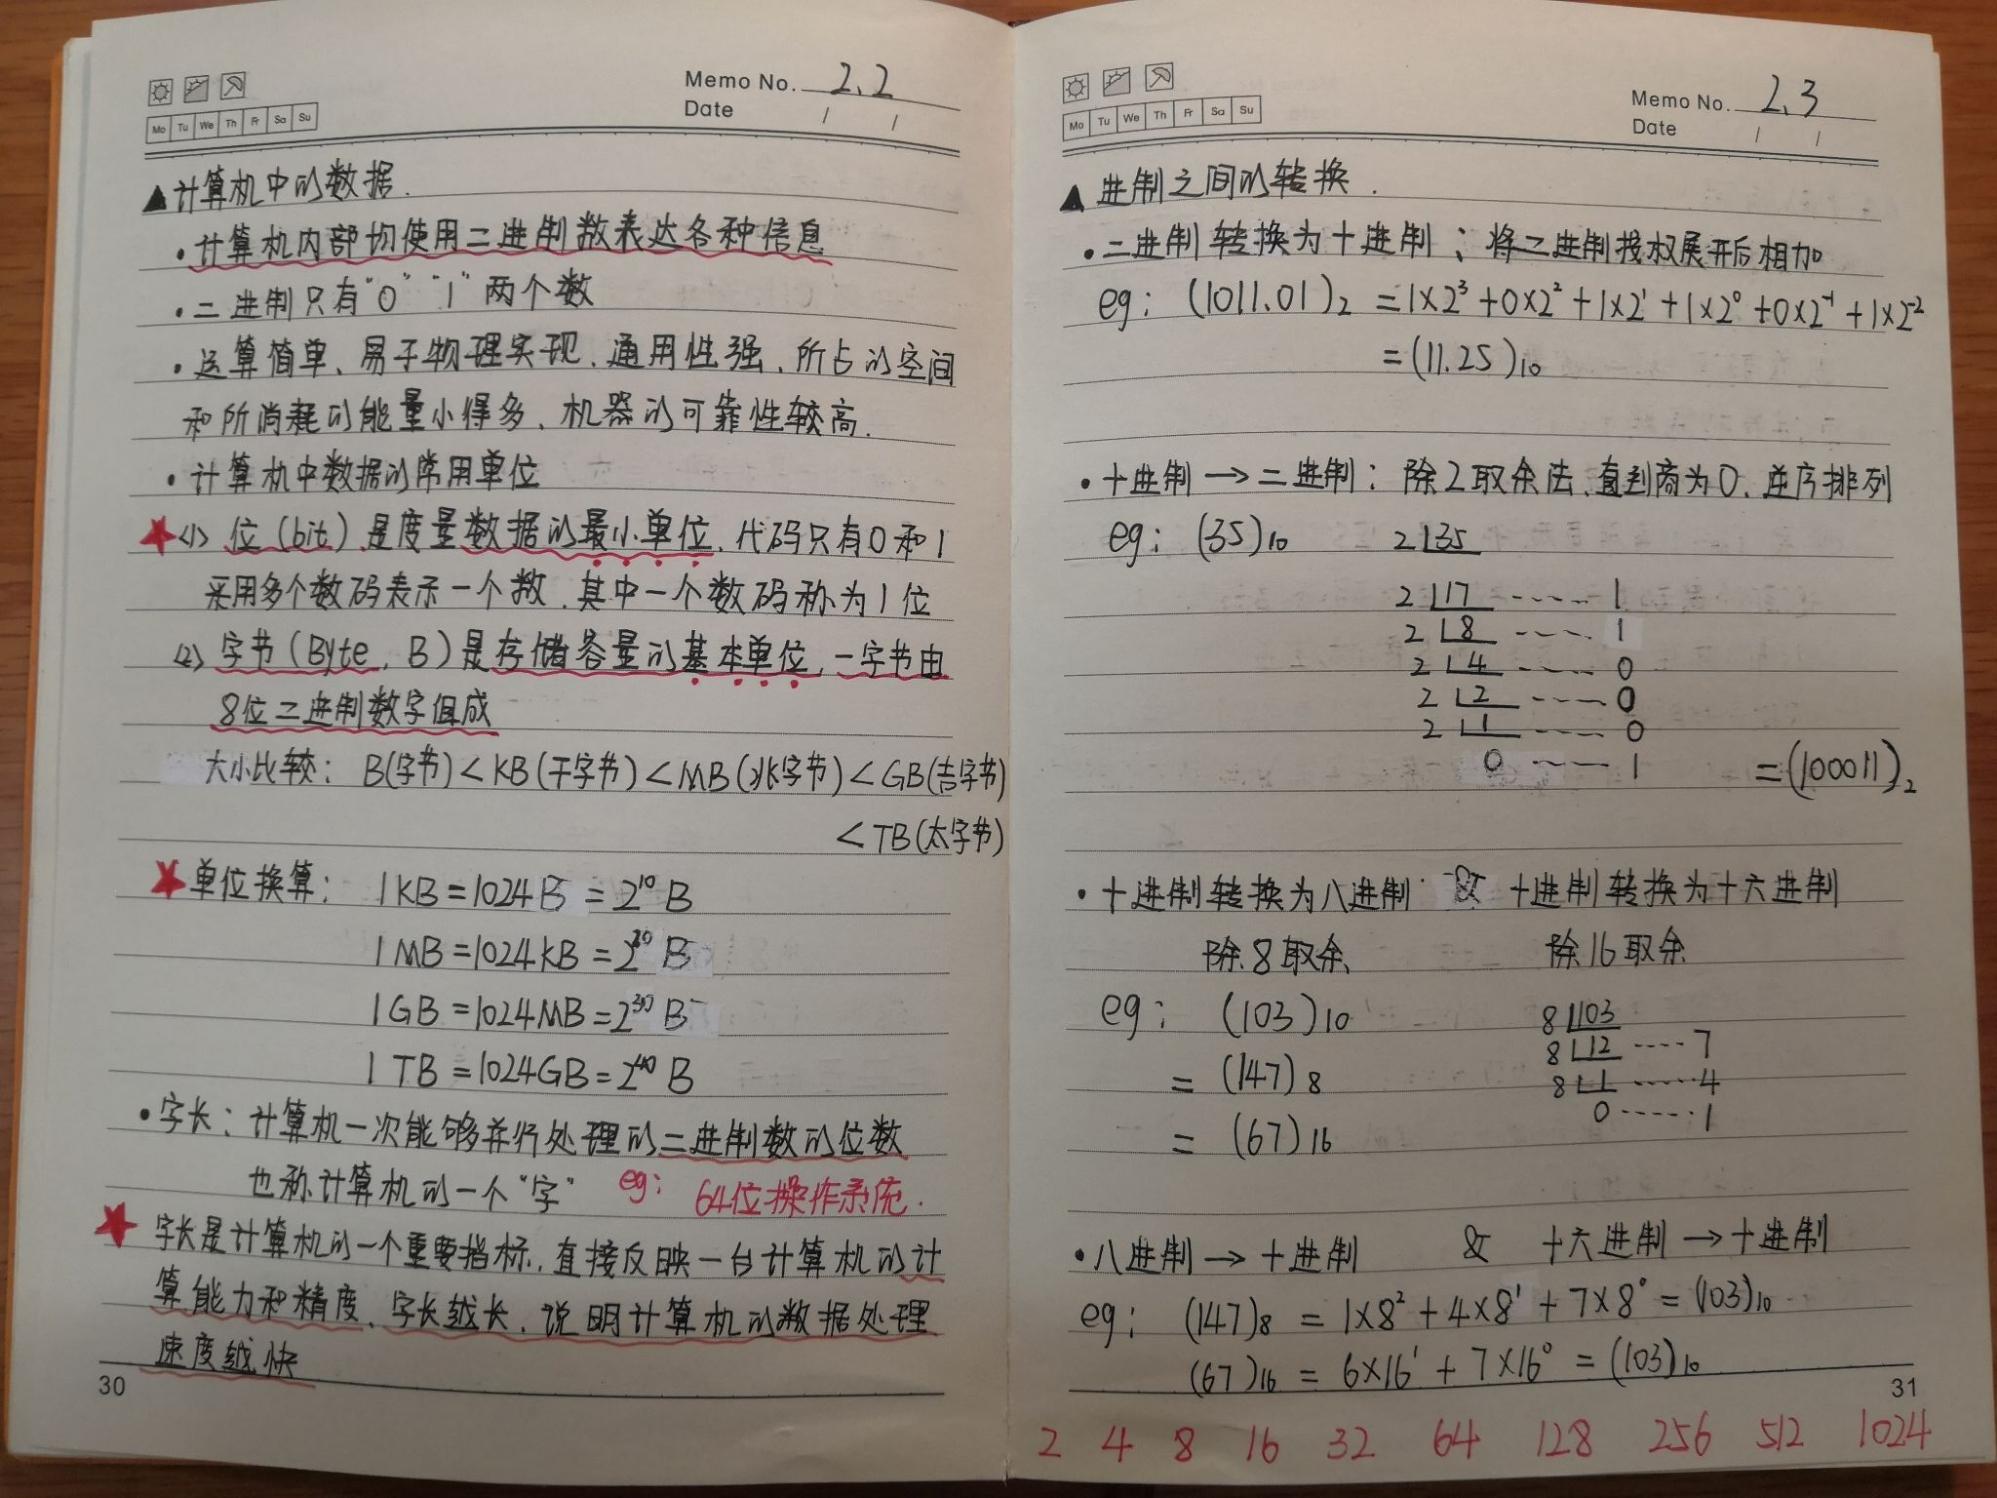 Memo No. 2.2
Mo Tu We Th Fr Sa Su
Date / /
▲计算机中的数据.
·计算机内部均使用二进制数表达各种信息
·二进制只有“0”“1”两个数
·运算简单、易于物理实现、通用性强、所占的空间
和所消耗的能量小得多、机器的可靠性较高.
·计算机中数据的常用单位
★<1> 位(bit)是度量数据的最小单位,代码只有0和1
采用多个数码表示一个数,其中一个数码称为1位
<2> 字节(Byte,B)是存储容量的基本单位,一字节由
8位二进制数字组成
大小比较: B(字节)<KB(千字节)<MB(兆字节)<GB(吉字节)
<TB(太字节)
★单位换算: 1KB=1024B=2¹⁰B
1MB=1024KB=2²⁰B
1GB=1024MB=2³⁰B
1TB=1024GB=2⁴⁰B
·字长:计算机一次能够并行处理的二进制数的位数
也称计算机的一个“字” eg: 64位操作系统.
★字长是计算机的一个重要指标,直接反映一台计算机的计
算能力和精度、字长越长,说明计算机的数据处理
速度越快
30
Memo No. 2.3
Mo Tu We Th Fr Sa Su
Date / /
▲进制之间的转换.
·二进制转换为十进制:将二进制按权展开后相加
eg: (1011.01)₂ =1×2³+0×2²+1×2¹+1×2⁰+0×2⁻¹+1×2⁻²
=(11.25)₁₀
·十进制→二进制:除2取余法、直到商为0、逆序排列
eg: (35)₁₀ 2 35
2 17 ---- 1
2 8 ---- 1
2 4 ---- 0
2 2 ---- 0
2 1 ---- 0
0 ---- 1 =(100011)₂
·十进制转换为八进制 & 十进制转换为十六进制
除8取余 除16取余
eg: (103)₁₀ 8 103
8 12 ---- 7
=(147)₈ 8 1 ---- 4
0 ---- 1
=(67)₁₆
·八进制→十进制 & 十六进制→十进制
eg: (147)₈ = 1×8²+4×8¹+7×8⁰=(103)₁₀
(67)₁₆ = 6×16¹+7×16⁰=(103)₁₀
31
2 4 8 16 32 64 128 256 512 1024